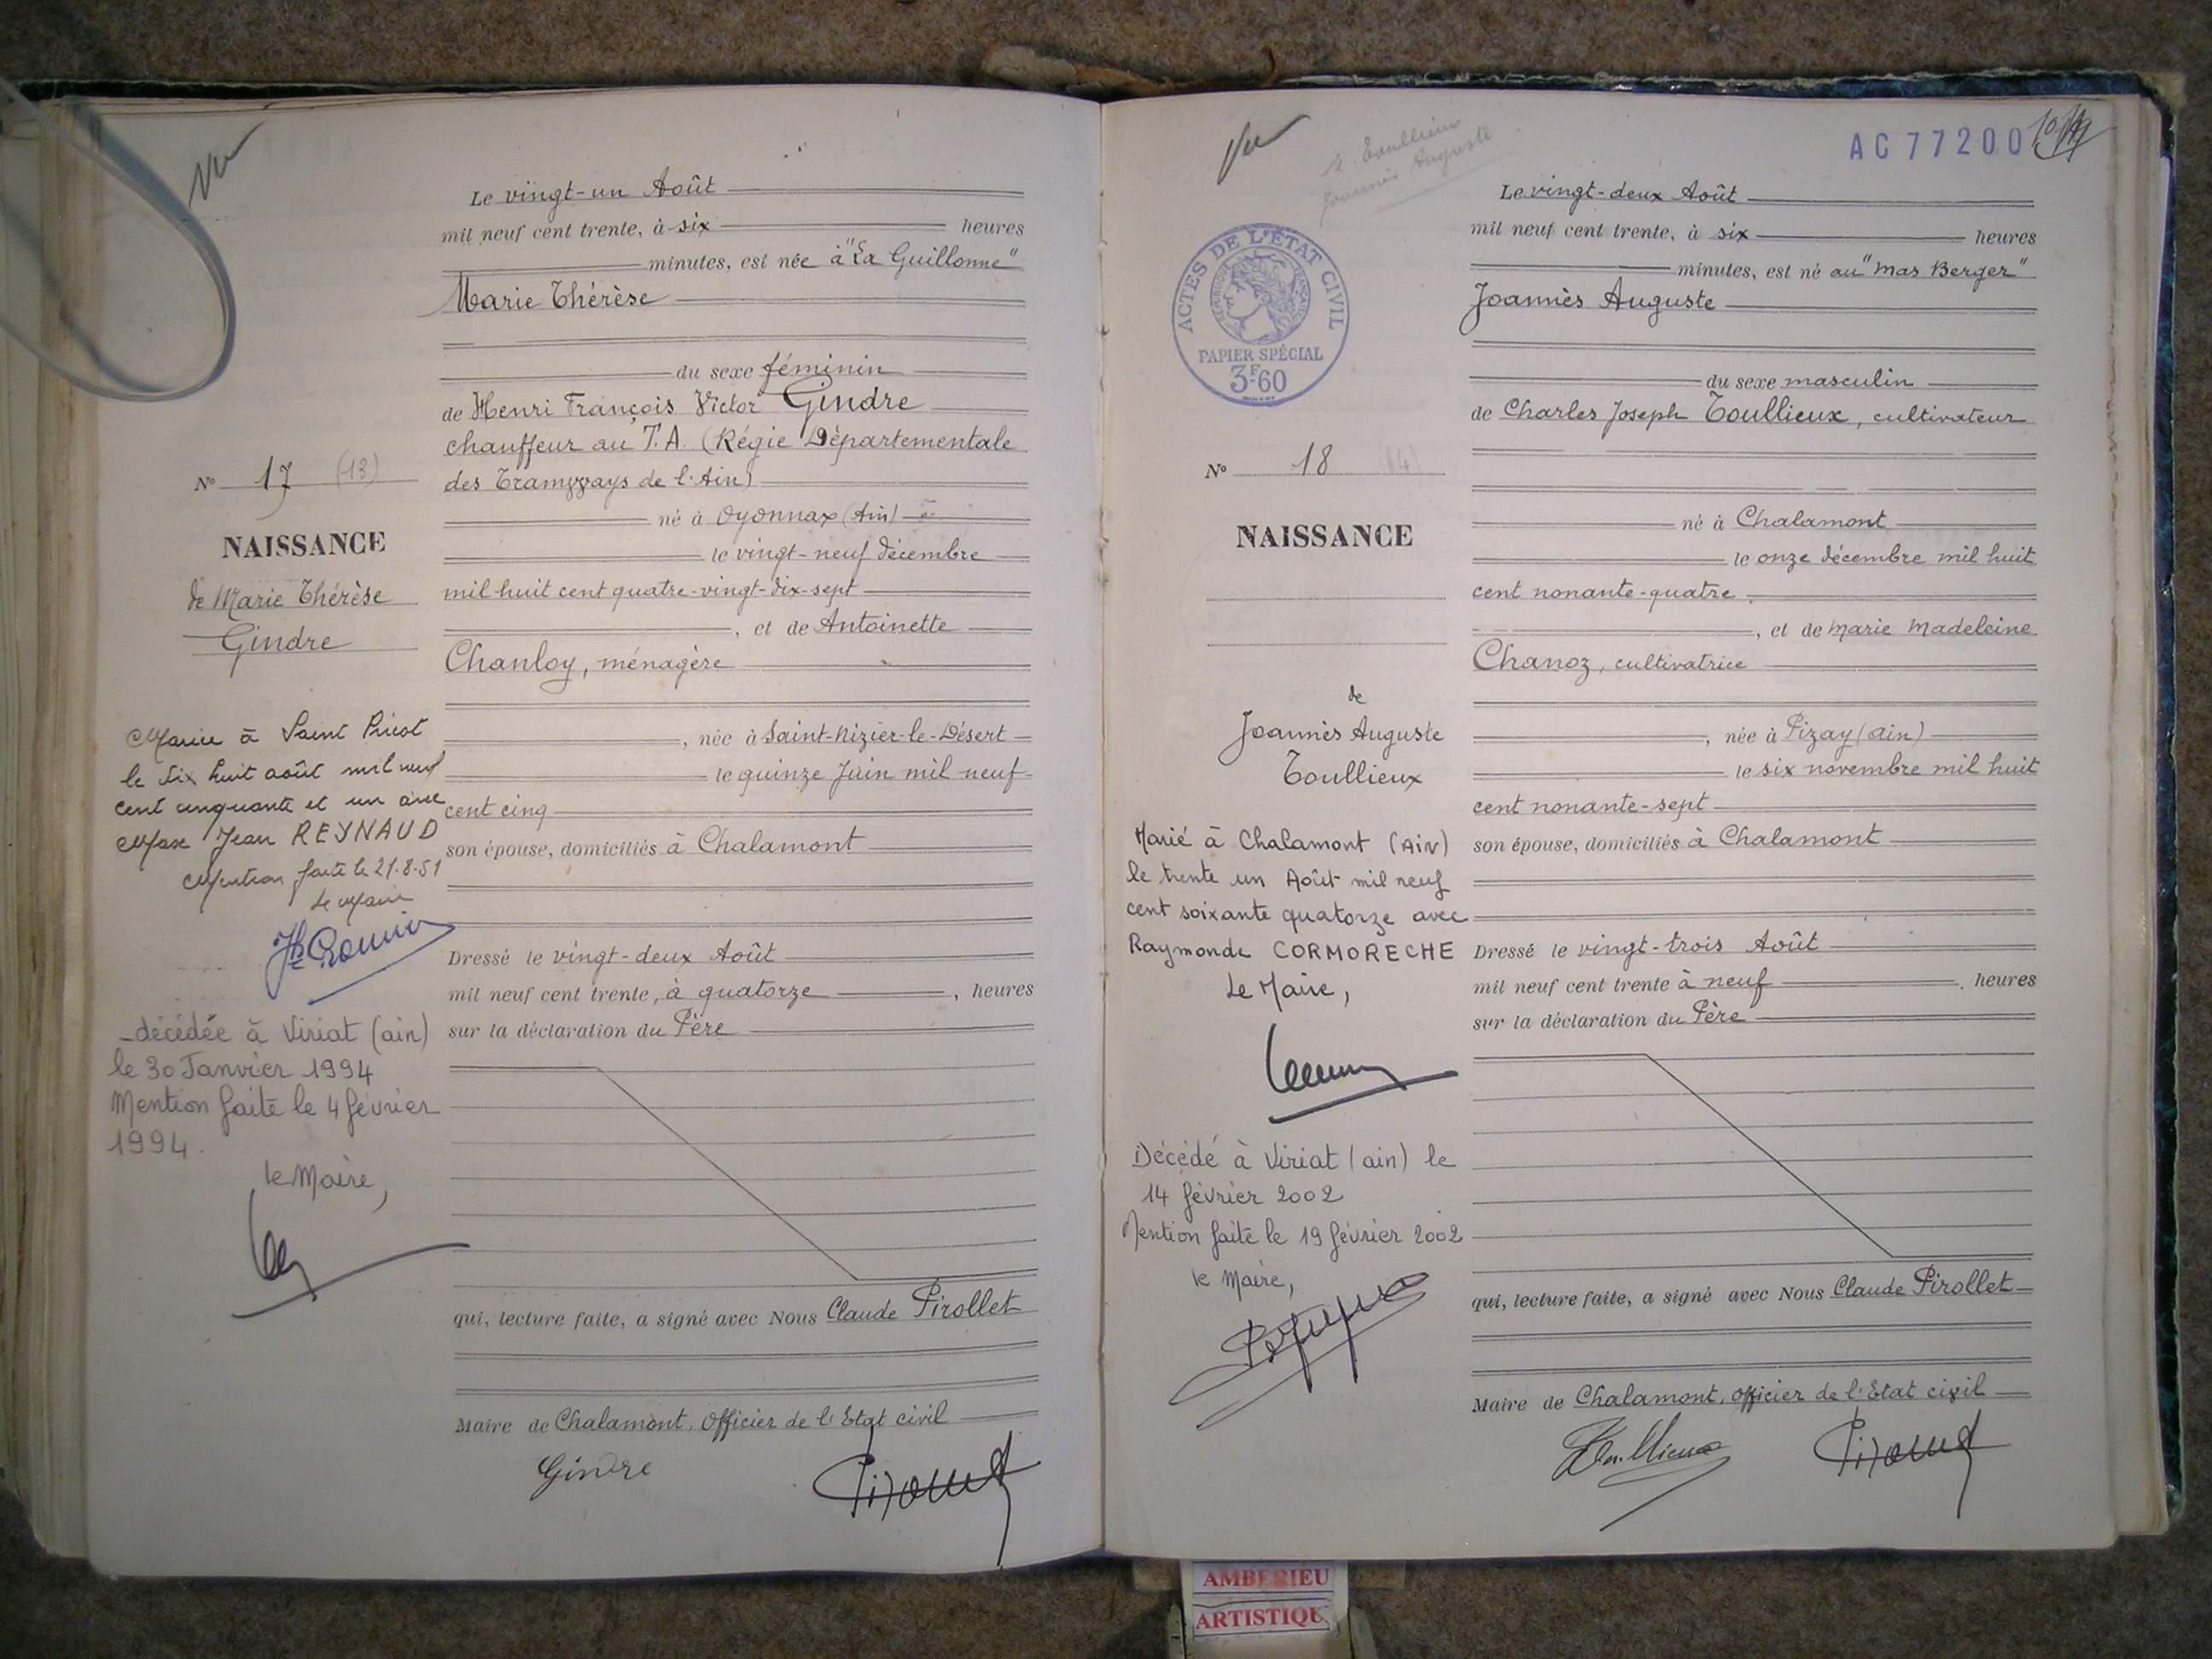 Vu
Le vingt-un Août
mil neuf cent trente, à six heures
minutes, est née à "La Guillonne"
Marie Thérèse
du sexe féminin
de Henri François Victor Gindre
chauffeur au T.A. (Régie Départementale
des Tramways de l'Ain)
né à Oyonnax (Ain)
le vingt-neuf décembre
mil huit cent quatre-vingt-dix-sept
, et de Antoinette
Chanloy, ménagère
, née à Saint-Nizier-le-Désert
le quinze Juin mil neuf
cent cinq
son épouse, domiciliés à Chalamont
Dressé le vingt-deux Août
mil neuf cent trente, à quatorze , heures
sur la déclaration du Père
qui, lecture faite, a signé avec Nous Claude Pirollet
Maire de Chalamont, Officier de l'Etat civil
Gindre
N° 17 (13)
NAISSANCE
de Marie Thérèse
Gindre
Mariée à Saint
le dix huit août mil neuf
cent cinquante et un avec
Max Jean REYNAUD
Mention faite le 21.8.51
Le Maire
décédée à Viriat (ain)
le 30 Janvier 1994
Mention faite le 4 février
1994.
le Maire,
Vu
Toullieux
Joannès Auguste
AC 77200
ACTES DE L'ÉTAT CIVIL
RÉPUBLIQUE FRANÇAISE
PAPIER SPÉCIAL
3F60
Le vingt-deux Août
mil neuf cent trente, à six heures
minutes, est né au "Mas Berger"
Joannès Auguste
du sexe masculin
de Charles Joseph Toullieux, cultivateur
né à Chalamont
le onze décembre mil huit
cent nonante-quatre
, et de Marie Madeleine
Chanoz, cultivatrice
, née à Pizay (Ain)
le six novembre mil huit
cent nonante-sept
son épouse, domiciliés à Chalamont
Dressé le vingt-trois Août
mil neuf cent trente à neuf , heures
sur la déclaration du Père
qui, lecture faite, a signé avec Nous Claude Pirollet
Maire de Chalamont, Officier de l'Etat civil
Toullieux
N° 18 (14)
NAISSANCE
de
Joannès Auguste
Toullieux
Marié à Chalamont (Ain)
le trente un Août mil neuf
cent soixante quatorze avec
Raymonde CORMORECHE
Le Maire,
Décédé à Viriat (ain) le
14 février 2002
Mention faite le 19 février 2002
le Maire,
AMBERIEU
ARTISTIQU